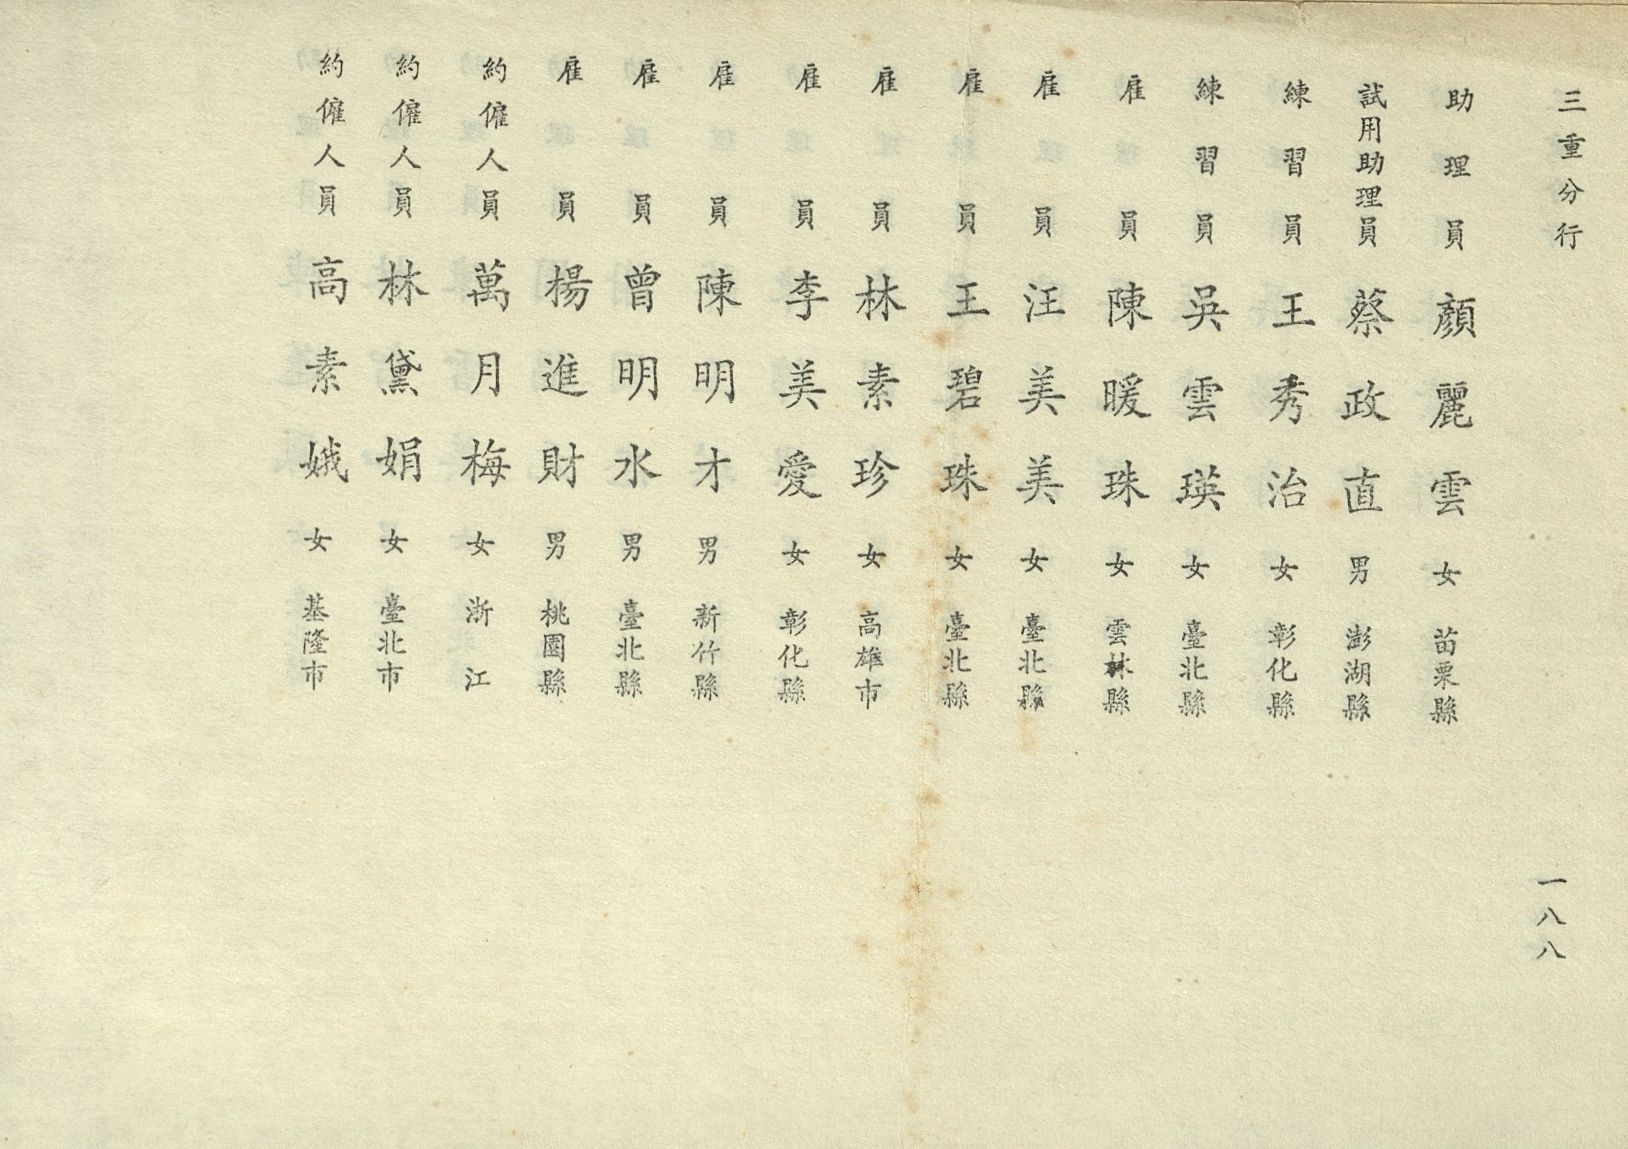 三重分行
一八八
助理員 顏麗雲 女 苗栗縣
試用助理員 蔡政直 男 澎湖縣
練習員 王秀治 女 彰化縣
練習員 吳雲瑛 女 臺北縣
雇員 陳暖珠 女 雲林縣
雇員 汪美美 女 臺北縣
雇員 王碧珠 女 臺北縣
雇員 林素珍 女 高雄市
雇員 李美愛 女 彰化縣
雇員 陳明才 男 新竹縣
雇員 曾明水 男 臺北縣
雇員 楊進財 男 桃園縣
約僱人員 萬月梅 女 浙江
約僱人員 林黛娟 女 臺北市
約僱人員 高素娥 女 基隆市